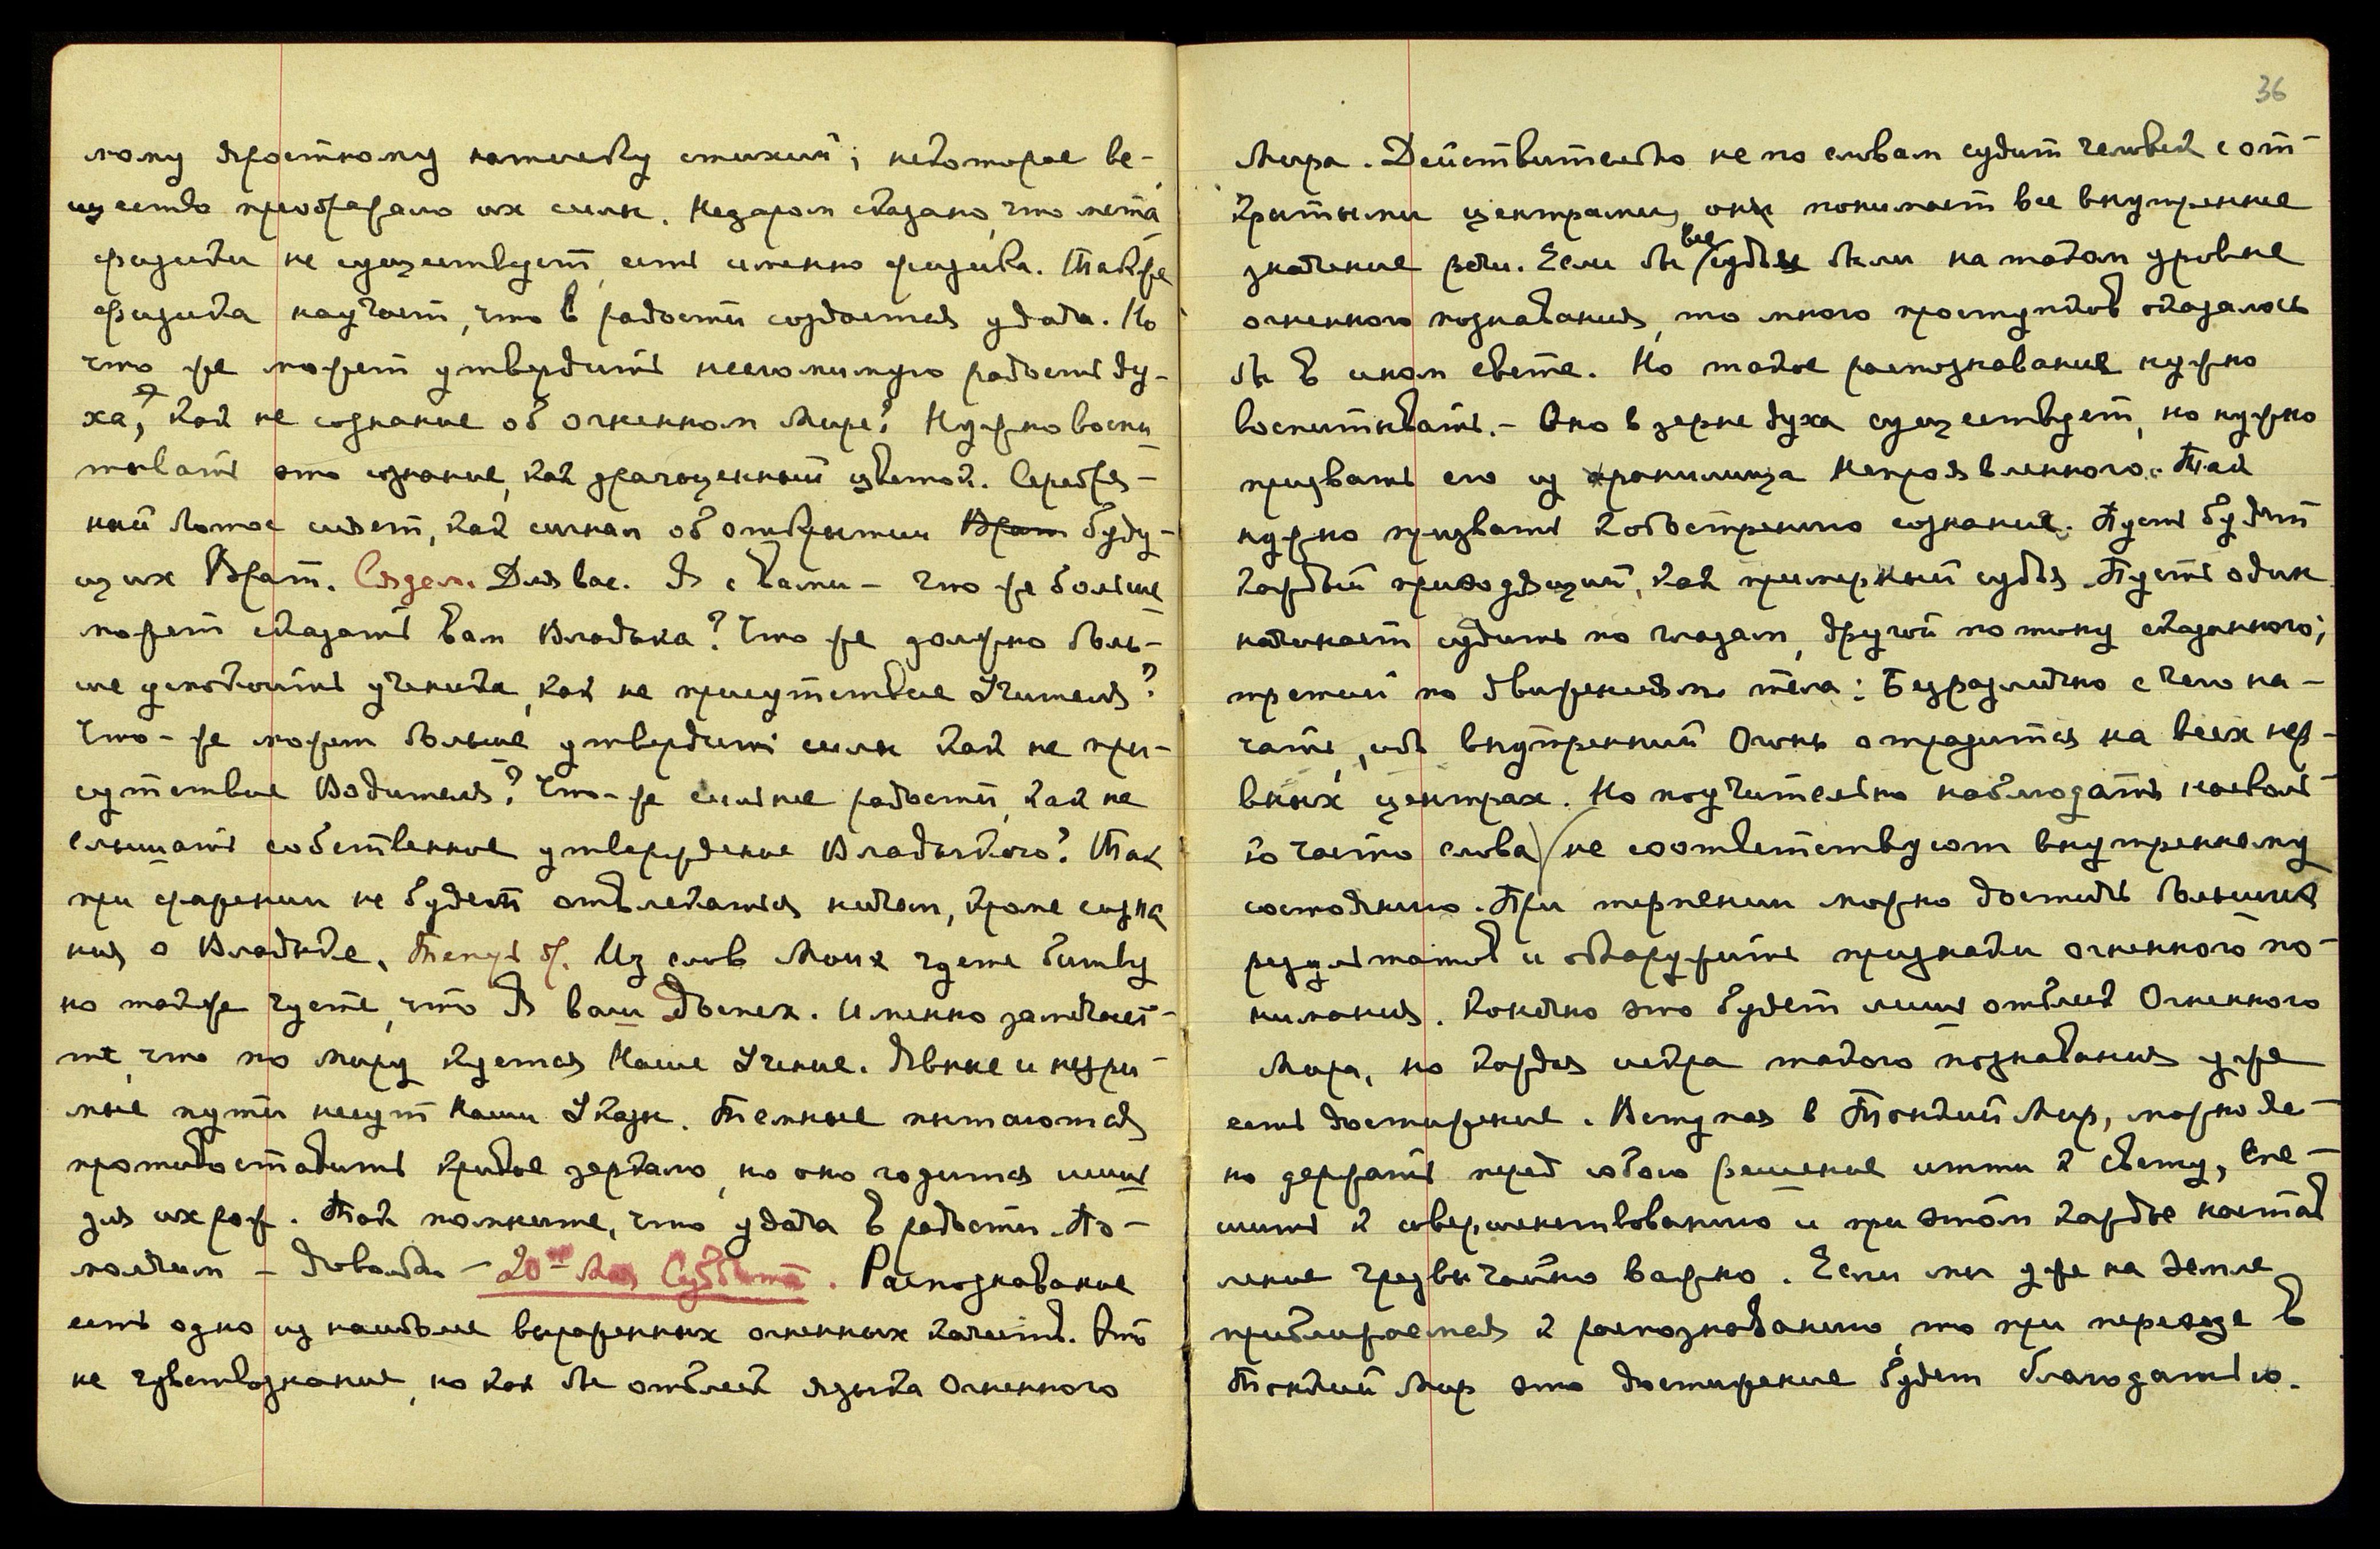 мому яростному натиску стихий; некоторое ве-
щество преображало их силы. Недаром сказано, что мета
физики не существует, есть именно физика. Также
физика научает, что в радости создается удача. Но
что же может утвердить несломимую радость ду-
ха, как не сознание об огненном Мире? Нужно воспи
тывать это сознание, как драгоценный цветок. Серебрян-
ный Лотос сияет, как сигнал об открытии Врат буду-
щих Врат. Сядем. Для вас. Я с вами – что же больше
может сказать вам Владыка? Что же должно боль-
ше успокоить ученика, как не присутствие Учителя?
Что-же может больше утвердить силы как не при-
сутствие Водителя? Что-же сильнее радости, как не
слышать собственное утверждение Владыкою? Так
при сражении не будем отвлекаться ничем, кроме созна
ния о Владыке. Из слов Моих чуете битву
но также чуете, что Я ваш Доспех. Именно замечает-
те, что по миру куется Наше Учение. Явные и незри-
мые пути несут Наши Указы. Темные пытаются
противоставить кривое зеркало, но оно годится лишь
для их рож. Так помните, что удача в радости. По-
молчим – Довольно – 20ᵒᵉ Мая Суббота. Распознавание
есть одно из наиболее выраженных огненных качеств. Это
не чувствознание, но как бы отблеск языка Огненного
36
Мира. Действительно не по словам судит человек с от-
крытыми центрами, он понимает все внутреннее
значение речи. Если бы все судьи были на таком уровне
огненного познавания, то много проступков оказалось
бы в ином свете. Но такое распознавание нужно
воспитывать. – Оно в зерне духа существует, но нужно
призвать его из хранилища Непроявленного. Так
нужно призвать к обострению сознание. Пусть будет
каждый приходящий, как примерный судья. Пусть один
начинает судить по глазам, другой по тону сказанного;
третий по движениям тела: Безразлично с чего на-
чать, ибо внутренний Огонь отразится на всех нер-
вных центрах. Но поучительно наблюдать насколь-
ко часто слова не соответствуют внутреннему
состоянию. При терпении можно достичь больших
результатов и обнаружить признаки огненного по-
нимания. Конечно это будет лишь отблеск Огненного
Мира, но каждая искра такого познавания уже
есть достижение. Вступая в Тонкий Мир, можно яс-
но держать перед собою решение итти к свету, Спе-
шить к совершенствованию и при этом каждое настав
ление чрезвычайно важно. Если мы уже на Земле
приближаемся к распознаванию, то при переходе в
Тонкий Мир это достижение будет благодатью.